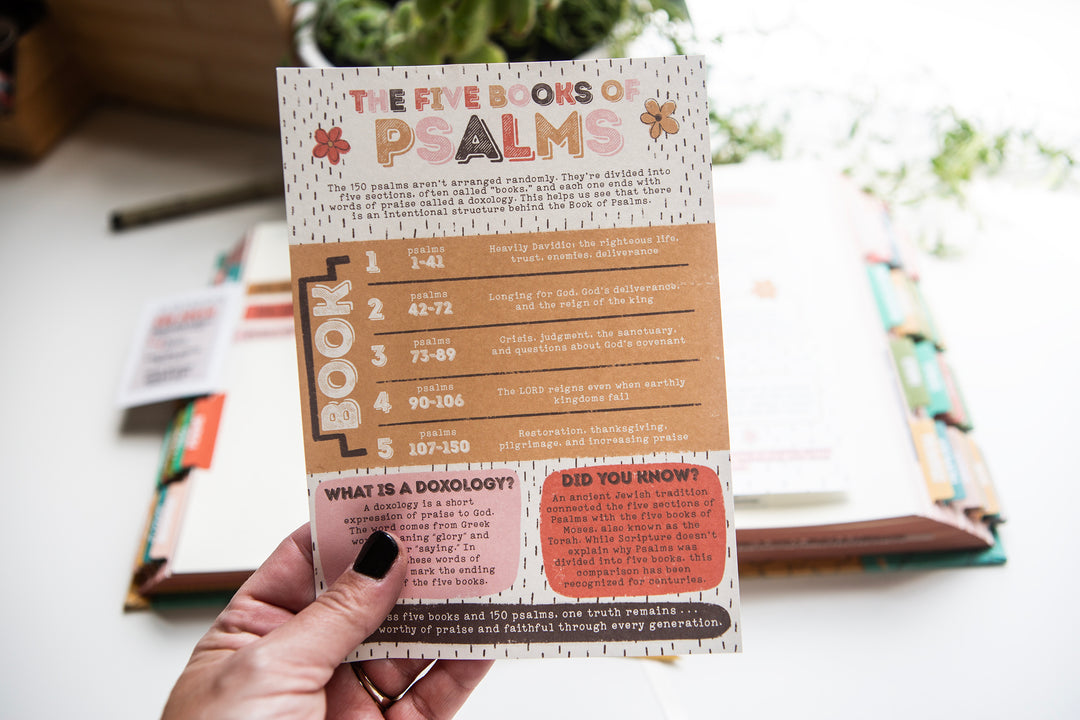 THE FIVE BOOKS OF
PSALMS
The 150 psalms aren't arranged randomly. They're divided into
five sections, often called "books," and each one ends with
words of praise called a doxology. This helps us see that there
is an intentional structure behind the Book of Psalms.
BOOK
1 psalms 1-41 Heavily Davidic: the righteous life,
trust, enemies, deliverance
2 psalms 42-72 Longing for God, God's deliverance,
and the reign of the king
3 psalms 73-89 Crisis, judgment, the sanctuary,
and questions about God's covenant
4 psalms 90-106 The LORD reigns even when earthly
kingdoms fail
5 psalms 107-150 Restoration, thanksgiving,
pilgrimage, and increasing praise
WHAT IS A DOXOLOGY?
A doxology is a short
expression of praise to God.
The word comes from Greek
"glory" and
"saying." In
words of
mark the ending
the five books.
DID YOU KNOW?
An ancient Jewish tradition
connected the five sections of
Psalms with the five books of
Moses, also known as the
Torah. While Scripture doesn't
explain why Psalms was
divided into five books, this
comparison has been
recognized for centuries.
five books and 150 psalms, one truth remains ...
worthy of praise and faithful through every generation.